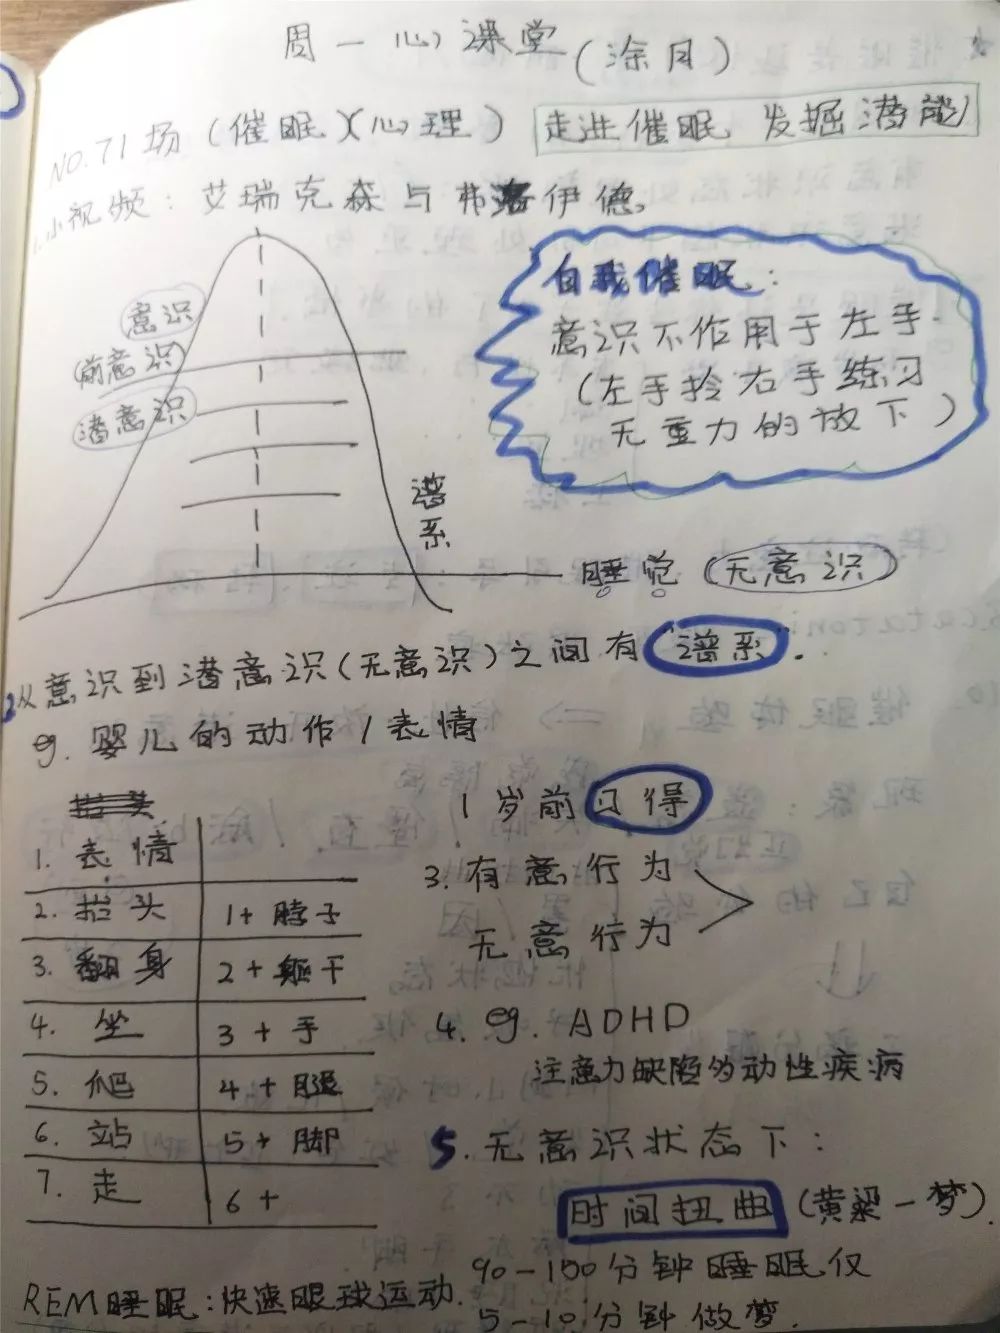 周一心课堂(涂月)
NO.71场(催眠)(心理) 走进催眠、发掘潜能
1.小视频:艾瑞克森与弗洛伊德
自我催眠:
意识不作用于左手
(左手拎右手练习
无重力的放下)
意识
前意识
潜意识
谱系
睡觉(无意识)
2.从意识到潜意识(无意识)之间有“谱系”.
eg.婴儿的动作/表情
抬头
1. 表情
2. 抬头 1+脖子
3. 翻身 2+躯干
4. 坐 3+手
5. 爬 4+腿
6. 站 5+脚
7. 走 6+
1岁前习得
3.有意行为
无意行为
4. eg. ADHD
注意力缺陷多动性疾病
5.无意识状态下:
时间扭曲(黄粱一梦).
90-100分钟睡眠仅
5-10分钟做梦.
REM睡眠:快速眼球运动.